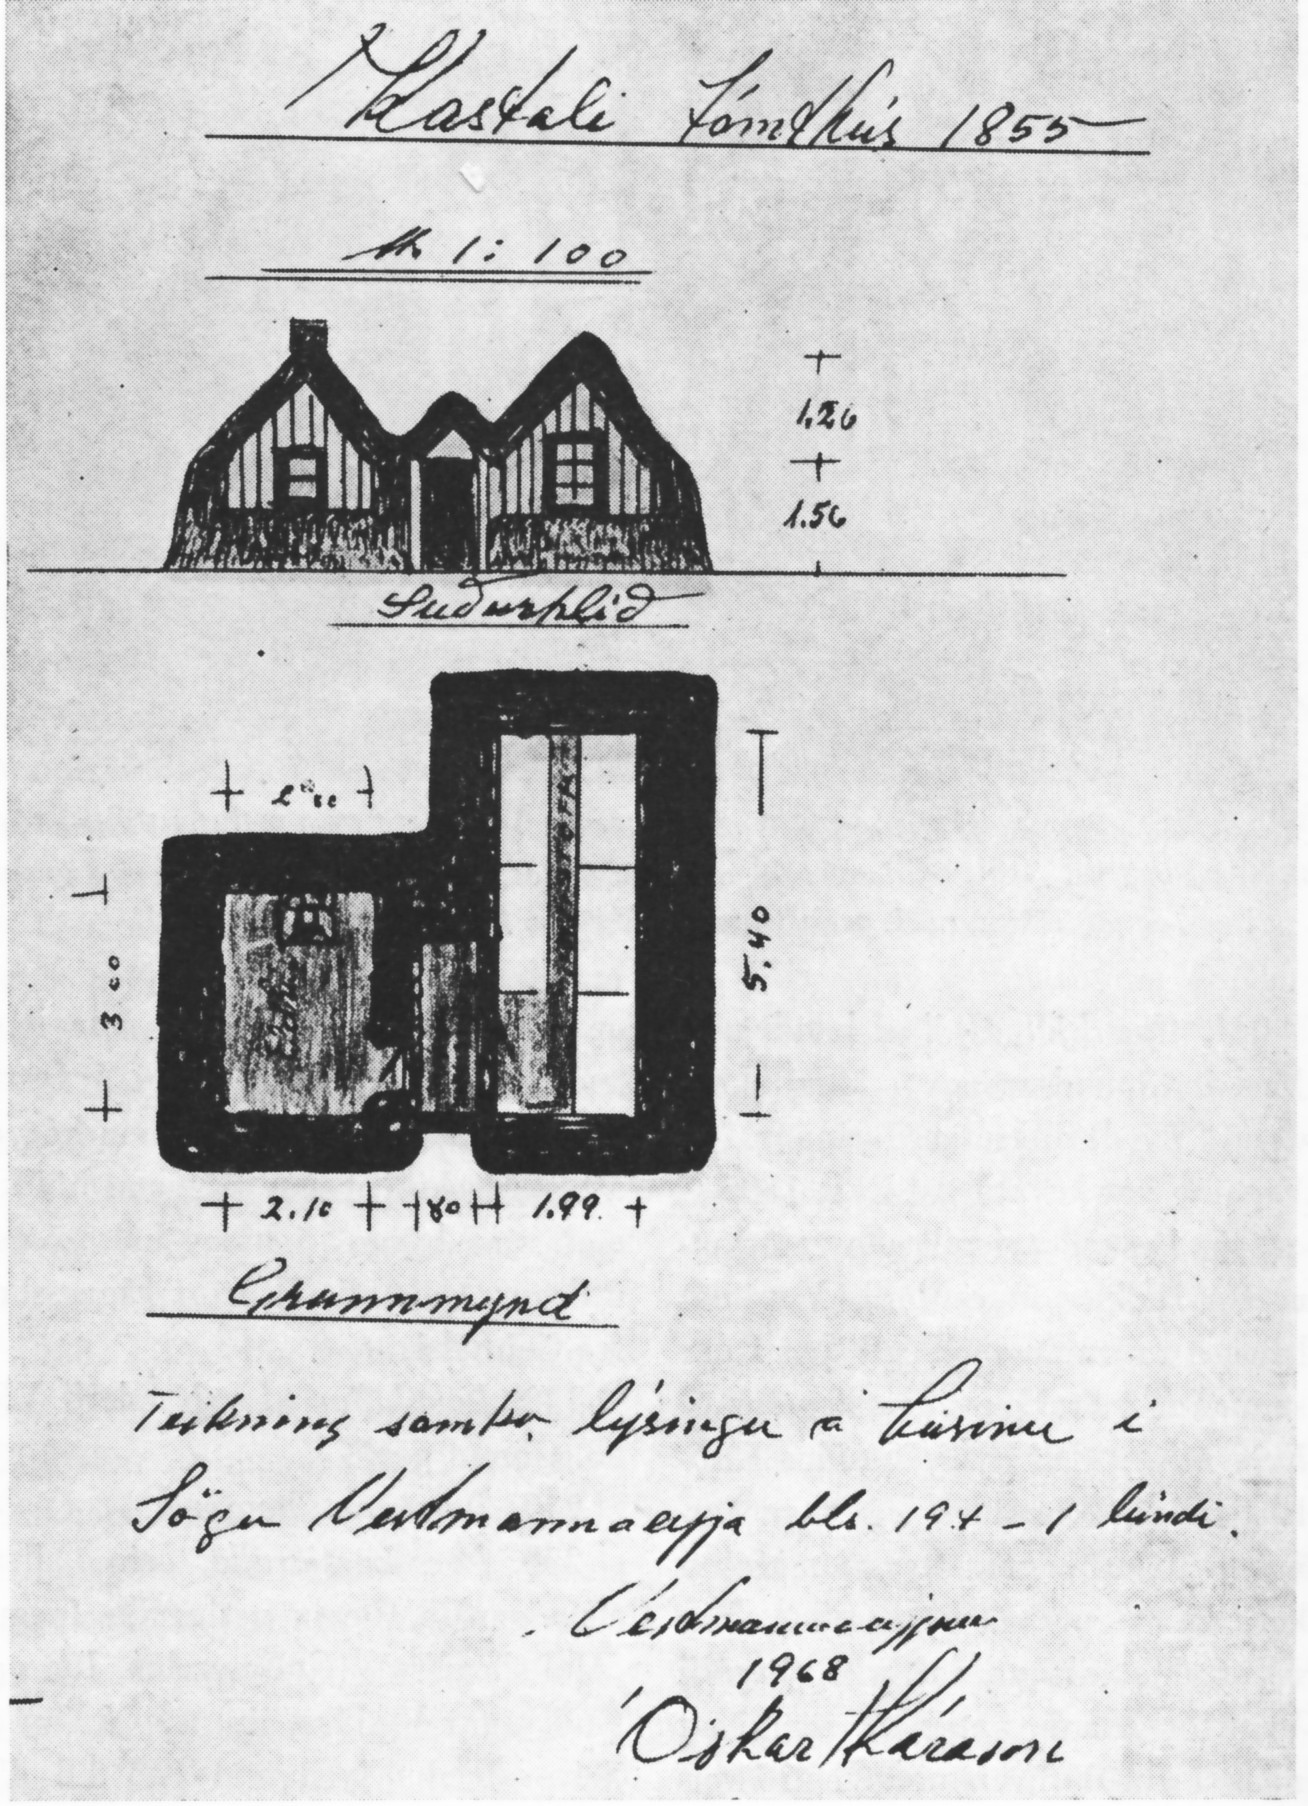 Kastali tómthús 1855
M 1:100
1.26
1.56
Suðurhlið
3.00
5.40
2.10 80 1.99
Grunnmynd
Teikning samkv. lýsingu á húsinu í
Sögu Vestmannaeyja bls. 194 - 1 bindi.
Vestmannaeyjum
1968
Óskar Kárason